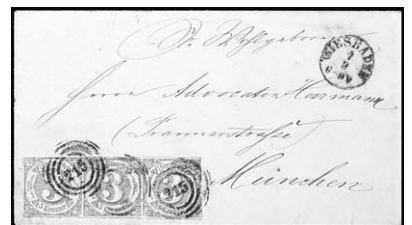 Sr. Wohlgeboren
WIESBADEN
Herrn Advocaten Hermann
(Brannerstraße)
München
3 3 3
215 215